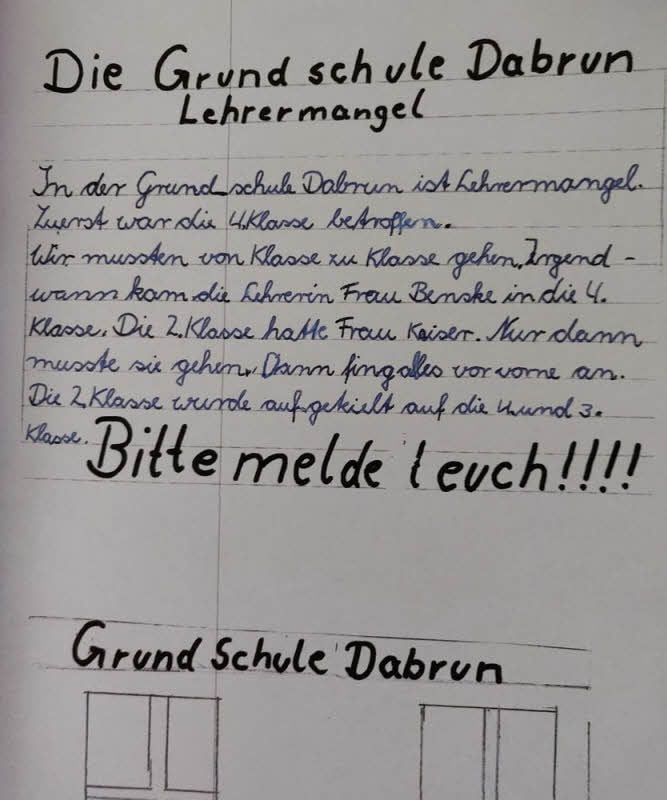 Die Grundschule Dabrun
Lehrermangel
In der Grund schule Dabrun ist Lehrermangel.
Zuerst war die 4.Klasse betroffen.
Wir mussten von Klasse zu Klasse gehen. Irgend-
wann kam die Lehrerin Frau Benske in die 4.
Klasse. Die 2.Klasse hatte Frau Kaiser. Nur dann
musste sie gehen. Dann fing alles vor vorne an.
Die 2.Klasse wurde aufgetielt auf die 4.und 3.
Klasse. Bitte melde t euch!!!!
Grund Schule Dabrun